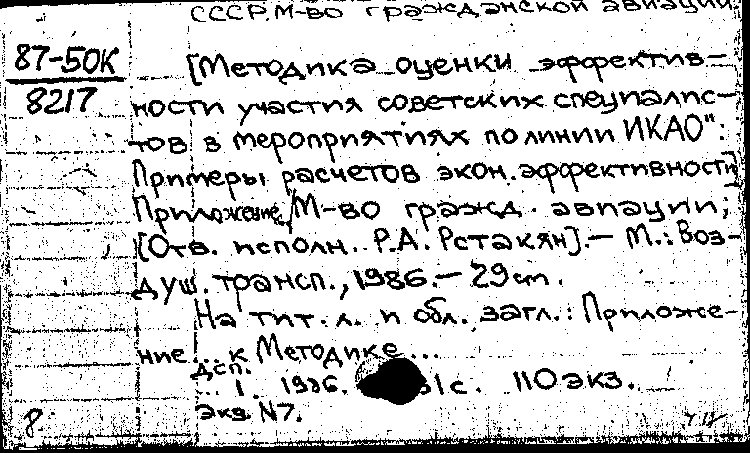 СССР. М-во гражданской авиации
87-50К
8217
[Методика оценки эффектив-
ности участия советских специалис-
тов в мероприятиях по линии ИКАО":
Примеры расчетов экон. эффективности]
Приложение / М-во гражд. авиации;
[Отв. исполн. Р.А. Рстакян]. — М.: Воз-
душ. трансп., 1986. — 29 см.
На тит. л. и обл. загл.: Приложе-
ние... к Методике...
Дсп.
1. 1986. 31 с. 110 экз.
Экз. N7.
8